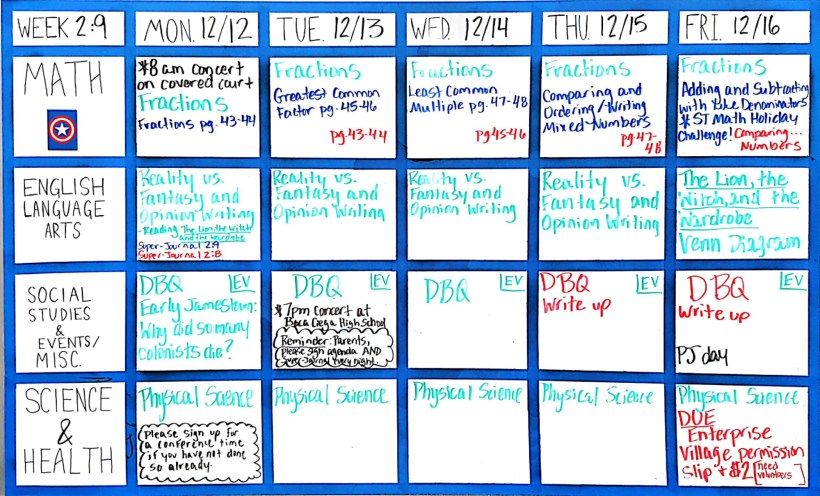 WEEK 2:9
MON. 12/12
TUE. 12/13
WED. 12/14
THU. 12/15
FRI. 12/16
MATH
*8 am concert
on covered court
Fractions
Fractions pg. 43-44
Fractions
Greatest Common
Factor pg. 45-46
pg. 43-44
Fractions
Least Common
Multiple pg. 47-48
pg 45-46
Fractions
Comparing and
Ordering/Writing
Mixed Numbers
pg. 47-
48
Fractions
Adding and Subtracting
with Like Denominators
* ST Math Holiday
Challenge! Comparing...
Numbers
ENGLISH
LANGUAGE
ARTS
Reality vs.
Fantasy and
Opinion Writing
-Reading The Lion, the Witch
and the Wardrobe
Super-Journal 2:9
Super-Journal 2:8
Reality vs.
Fantasy and
Opinion Writing
Reality vs.
Fantasy and
Opinion Writing
Reality vs.
Fantasy and
Opinion Writing
The Lion, the
Witch, and the
Wardrobe
Venn Diagram
SOCIAL
STUDIES
&
EVENTS/
MISC.
DBQ EV
Early Jamestown:
Why did so many
colonists die?
DBQ EV
*7pm concert at
Boca Ciega High School
Reminder: Parents,
please sign agenda AND
Super-Journal every night.
DBQ EV
DBQ EV
Write up
DBQ EV
Write up
PJ day
SCIENCE
&
HEALTH
Physical Science
Please sign up for
a conference time
if you have not done
so already.
Physical Science
Physical Science
Physical Science
Physical Science
DUE
Enterprise
Village permission
Slip + $2 [need
volunteers]